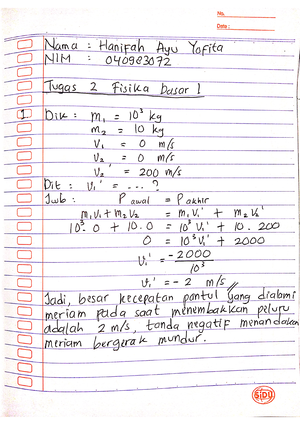 No.
Date:
Nama : Hanifah Ayu Yofita
NIM : 040983072
Tugas 2 Fisika Dasar 1
1 Dik : m₁ = 10³ kg
m₂ = 10 kg
V₁ = 0 m/s
V₂ = 0 m/s
V₂' = 200 m/s
Dit : V₁' = ... ?
Jwb : P awal = P akhir
m₁V₁ + m₂V₂ = m₁V₁' + m₂V₂'
10³.0 + 10.0 = 10³V₁' + 10.200
0 = 10³V₁' + 2000
V₁' = -2000
10³
V₁' = -2 m/s //
Jadi, besar kecepatan pantul yang dialami
meriam pada saat menembakkan peluru
adalah 2 m/s, tanda negatif menandakan
meriam bergerak mundur.
SIDU